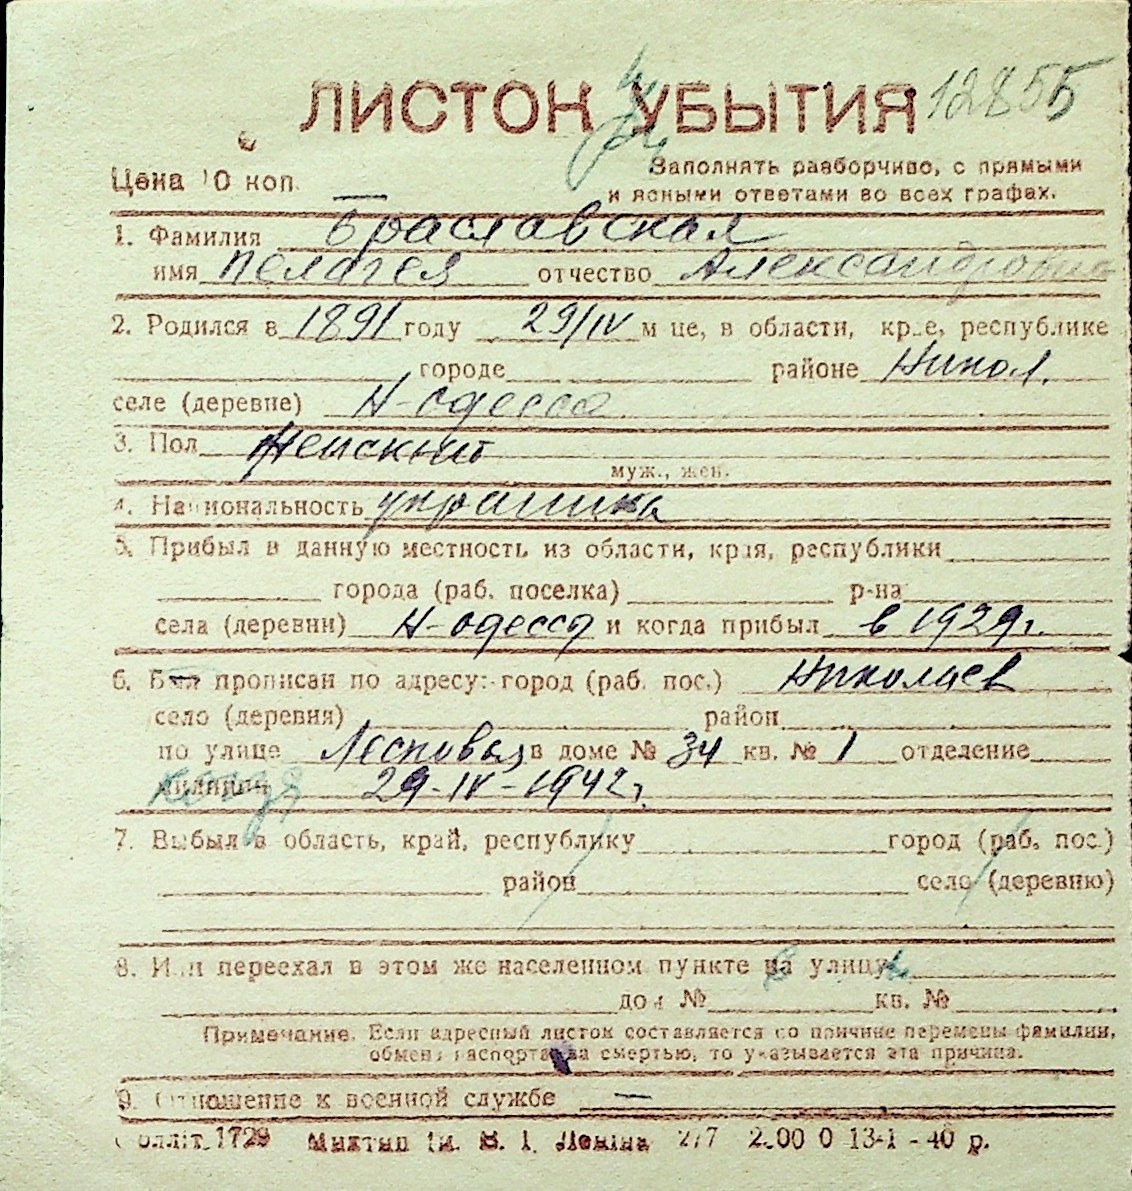 ЛИСТОК УБЫТИЯ 12855
Цена 10 коп. Заполнять разборчиво, с прямыми
и ясными ответами во всех графах.
1. Фамилия Браславская
имя Пелагея отчество Александровна
2. Родился в 1891 году 29/IV м-це, в области, крае, республике
городе районе Никол.
селе (деревне) Н-Одесса
3. Пол Женский
муж., жен.
4. Национальность украинка
5. Прибыл в данную местность из области, края, республики
города (раб. поселка) р-на
села (деревни) Н-Одесса и когда прибыл в 1929 г.
6. Был прописан по адресу: город (раб. пос.) Николаев
село (деревня) район
по улице в доме № 34 кв. № 1 отделение
милиции 29-IV-1942 г.
7. Выбыл в область, край, республику город (раб. пос.)
район село (деревню)
8. Или переехал в этом же населенном пункте на улицу
дом № кв. №
Примечание. Если адресный листок составляется по причине перемены фамилии,
обмена паспорта, за смертью, то указывается эта причина.
9. Отношение к военной службе —
1729 им. В. І. Леніна 2/7 13-1 - 40 р.